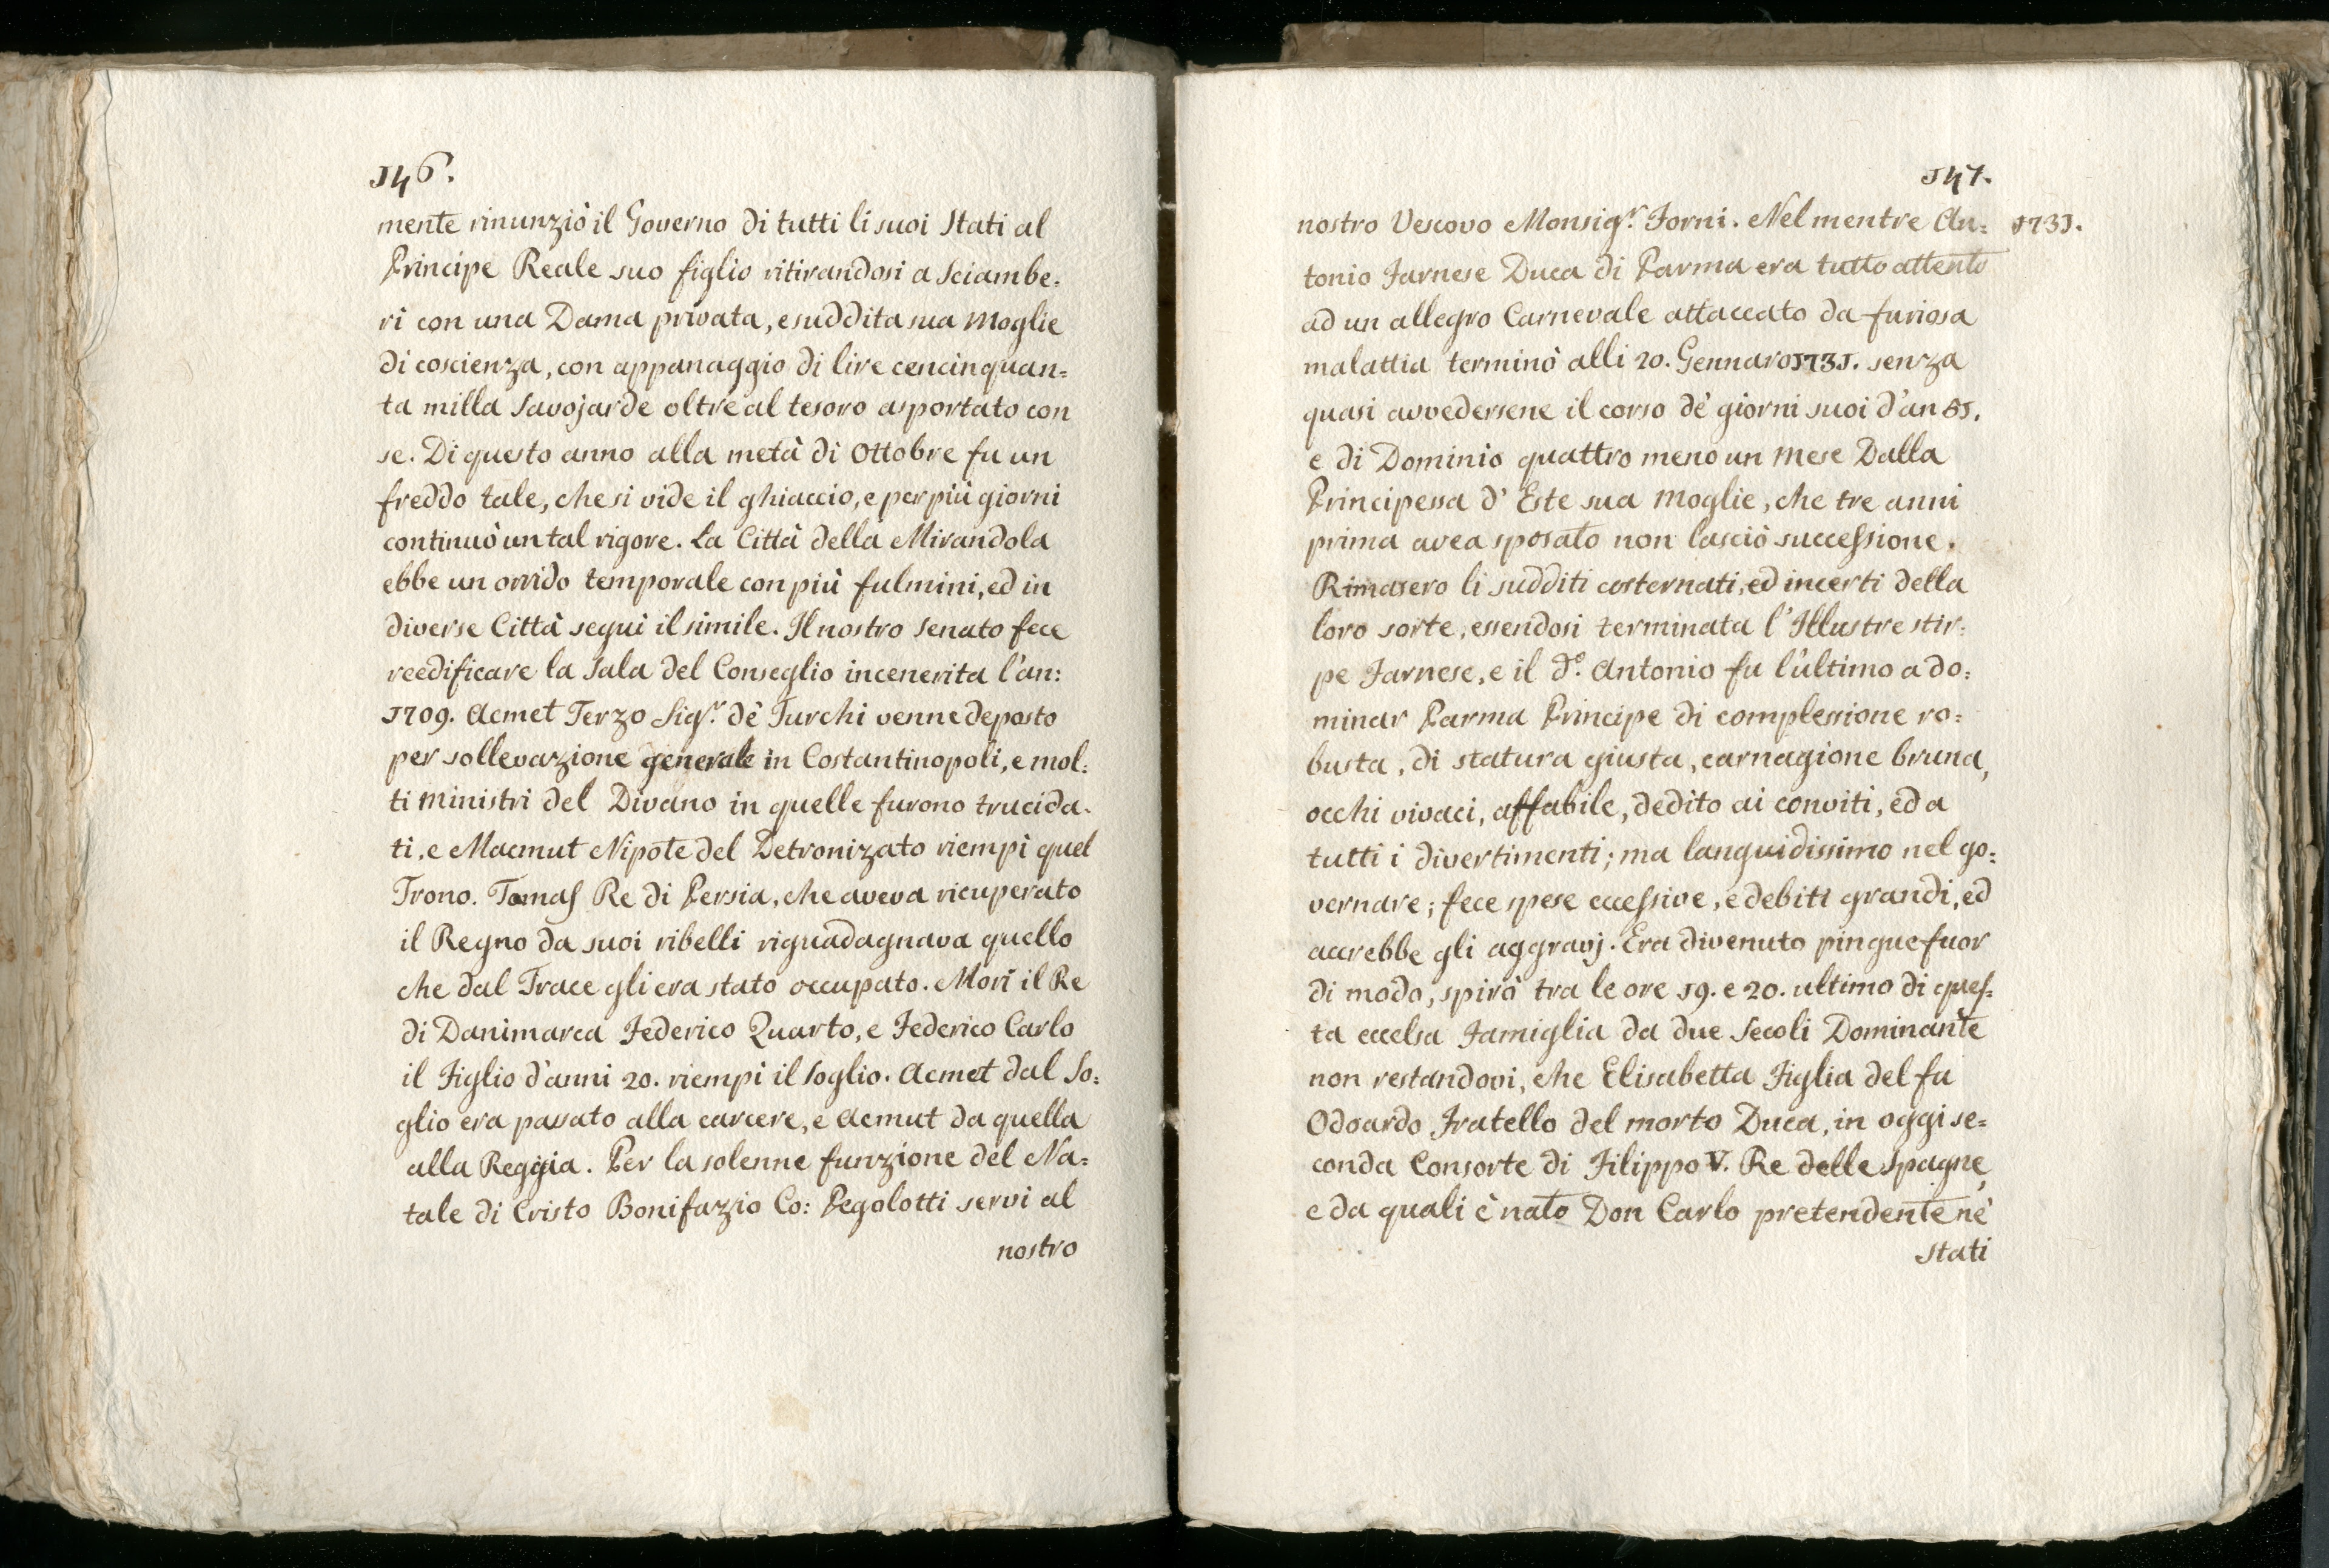 146.
mente rinunziò il Governo di tutti li suoi Stati al
Principe Reale suo figlio ritirandosi a Sciambe:
ri con una Dama privata, e suddita sua Moglie
di coscienza, con appanaggio di lire cencinquan=
ta milla Savojarde oltre al tesoro asportato con
se. Di questo anno alla metà di Ottobre fu un
freddo tale, che si vide il ghiaccio, e per più giorni
continuò un tal rigore. La Città della Mirandola
ebbe un orrido temporale con più fulmini, ed in
diverse Città seguì il simile. Il nostro Senato fece
reedificare la Sala del Conseglio incenerita l'an:
1709. Acmet Terzo Sig.r dè Turchi venne deposto
per sollevazione generale in Costantinopoli, e mol:
ti Ministri del Divano in quelle furono trucida:
ti, e Macmut Nipote del Detronizato riempì quel
Trono. Tomas Re di Persia, che aveva ricuperato
il Regno da suoi ribelli riguadagnava quello
che dal Trace gli era stato occupato. Morì il Re
di Danimarca Federico Quarto, e Federico Carlo
il Figlio d'anni 20. riempì il Soglio. Acmet dal So:
glio era passato alla carcere, e Acmut da quella
alla Reggia. Per la solenne funzione del Na:
tale di Cristo Bonifazio Co: Pegolotti servì al
nostro
147.
nostro Vescovo Monsig.r Forni. Nel mentre An: 1731.
tonio Farnese Duca di Parma era tutto attento
ad un allegro Carnevale attaccato da furiosa
malattia terminò alli 20. Gennaro 1731. senza
quasi avvedersene il corso dè giorni suoi d'an 51.
e di Dominio quattro meno un Mese Dalla
Principessa d'Este sua Moglie, che tre anni
prima avea sposato non lasciò successione.
Rimasero li sudditi costernati, ed incerti della
loro sorte, essendosi terminata l'Illustre stir:
pe Farnese, e il d.o Antonio fu l'ultimo a do:
minar Parma Principe di complessione ro:
busta, di statura giusta, carnagione bruna,
occhi vivaci, affabile, dedito ai conviti, ed a
tutti i divertimenti; ma languidissimo nel go:
vernare; fece spese eccessive, e debiti grandi, ed
accrebbe gli aggravj. Era divenuto pingue fuor
di modo, spirò tra le ore 19. e 20. ultimo di ques=
ta eccelsa Famiglia da due Secoli Dominante
non restandovi, che Elisabetta Figlia del fu
Odoardo Fratello del morto Duca, in oggi se=
conda Consorte di Filippo V. Re delle Spagne,
e da quali è nato Don Carlo pretendente nè
Stati